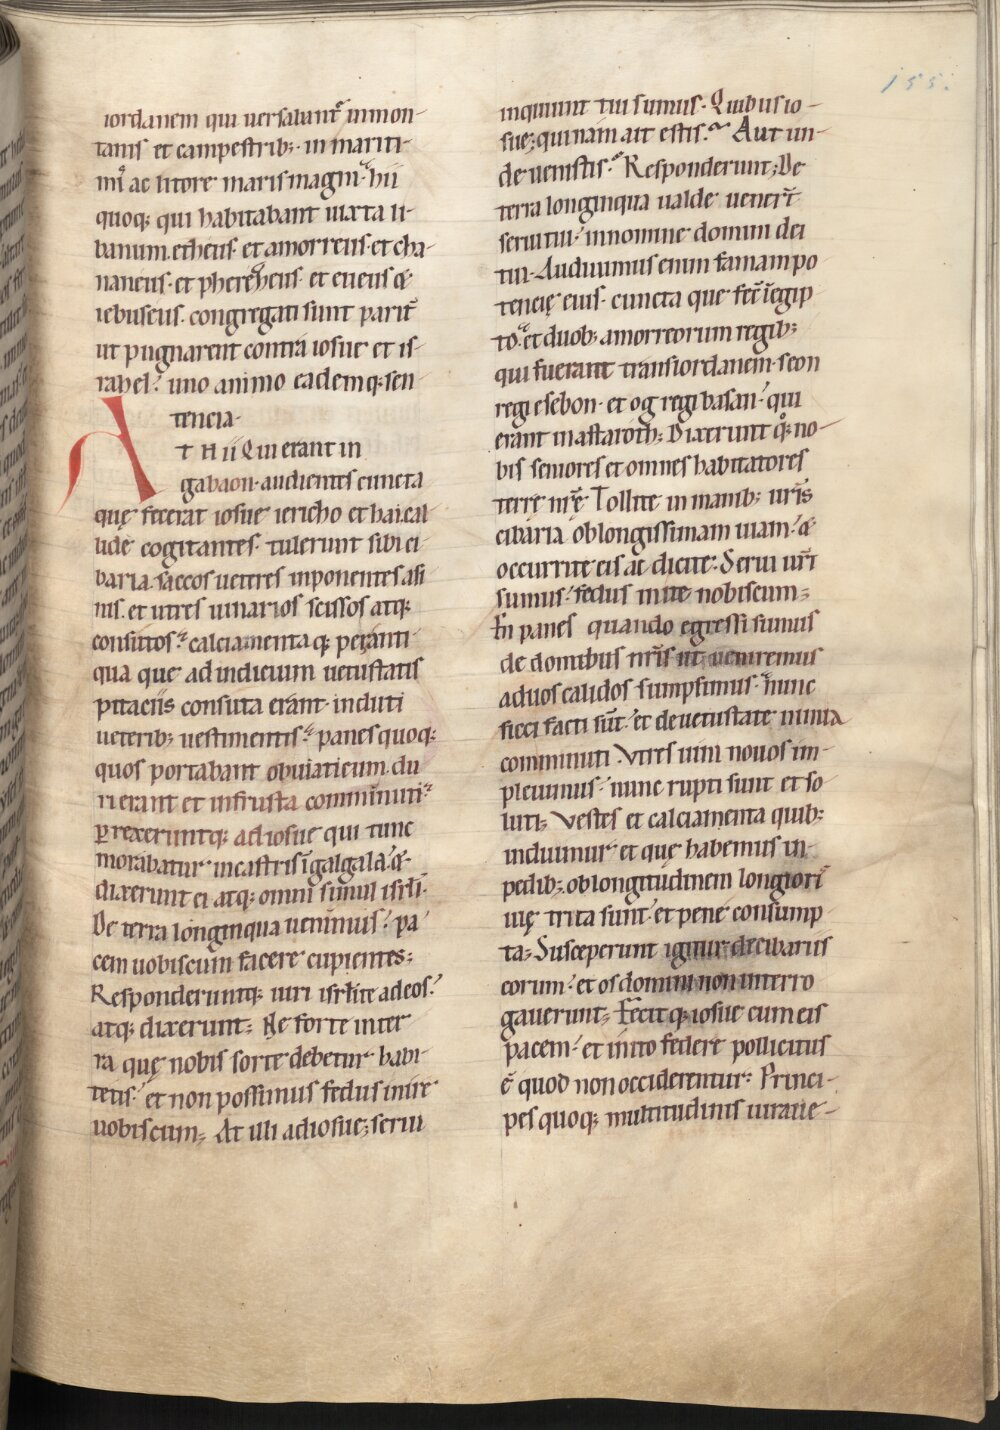 155.
iordanem qui uersabunt̄ in mon-
tanis et campestrib; in mariti-
mi̊ ac litore maris magni· hii
quoq; qui habitabant iuxta li-
banum. etheus· et amorreus· et cha-
naneus· et pherezeus· et eueus &
iebuseus. congregati sunt parit̄
ut pugnarent contra iosue et is-
rahel· uno animo eademq; sen
tencia·
AT HII Qui erant in
gabaon· audientes cuncta
quę fecerat iosue iericho et hai. cal
lide cogitantes· tulerunt sibi ci-
baria. saccos ueteres inponentes asi
nis. et utres uinarios scissos atq;
consutos· calciamentaq; peranti-
qua que ad indicium uetustatis
pitaciis consuta erant· induti
ueterib; uestimentis· panes quoq;
quos portabant ob uiaticum. du
ri erant et in frusta comminuti·
ꝑrexeruntq; ad iosue qui tunc
morabatur in castris ī galgala. &
dixerunt ei atq; omni simul isrłi·
De terra longinqua uenimus· pa
cem uobiscum facere cupientes;
Responderuntq; uiri isrłite ad eos·
atq; dixerunt; Ne forte in ter
ra quę nobis sorte debetur habi-
tetis· et non possimus fedus inire
uobiscum; At illi ad iosue; serui
inquiunt tui sumus· Quibus io-
sue; quinam ait estis· Aut un-
de uenistis· Responderunt; De
terra longinqua ualde uener̄t
serui tui· in nomine domini dei
tui· Audiuimus enim famam po
tencię eius· cuncta que fec̄ ī egip
to· et duob; amorreorum regib;
qui fuerant trans iordanem· seon
regi esebon· et og regi basan· qui
erant in astaroth; Dixeruntq; no-
bis seniores et omnes habitatores
terrę nr̄ę Tollite in manib; ur̄is
cibaria ob longissimam uiam· &
occurrite eis ac dicite· Serui ur̄i
sumus· fedus inite nobiscum;
En panes quando egressi sumus
de domibus nr̄is ut ueniremus
ad uos calidos sumpsimus· nunc
sicci facti sūt· et de uetustate nimia
comminuti· Vtres uini nouos im-
pleuimus· nunc rupti sunt et so
luti; Vestes et calciamenta quib;
induimur et quę habemus in
pedib; ob longitudinem longiori
uię trita sunt· et pene consump
ta; Susceperunt igitur de cibariis
eorum· et os domini non interro
gauerunt; Fecitq; iosue cum eis
pacem· et inito federe pollicitus
ē quod non occiderentur· Princi-
pes quoq; multitudinis iuraue-